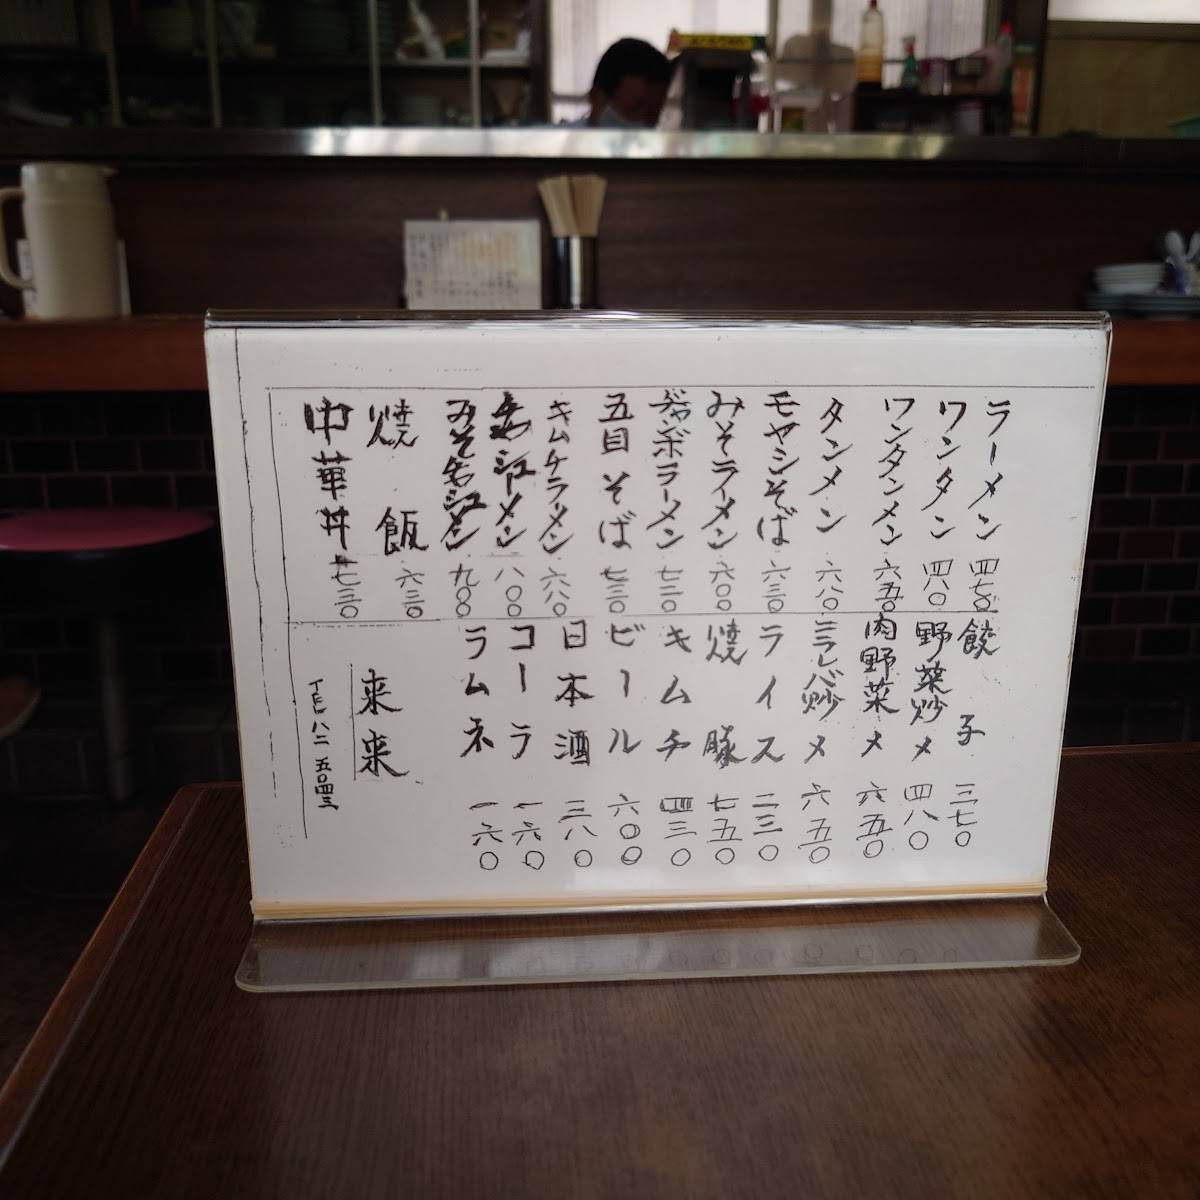 ラーメン 四七〇
ワンタン 四八〇
ワンタンメン 六五〇
タンメン 六八〇
モヤシそば 六三〇
みそラーメン 六〇〇
ジャンボラーメン 七三〇
五目そば 七三〇
キムチラーメン 六八〇
メン 八〇〇
みそ メン 九〇〇
焼飯 六三〇
中華丼 七三〇
餃子 三七〇
野菜炒メ 四八〇
肉野菜メ 六五〇
ニラレバ炒メ 六五〇
ライス 二三〇
焼豚 七五〇
キムチ 四三〇
ビール 六〇〇
日本酒 三八〇
コーラ 一六〇
ラムネ 一六〇
来来
TEL 八二 五〇四三